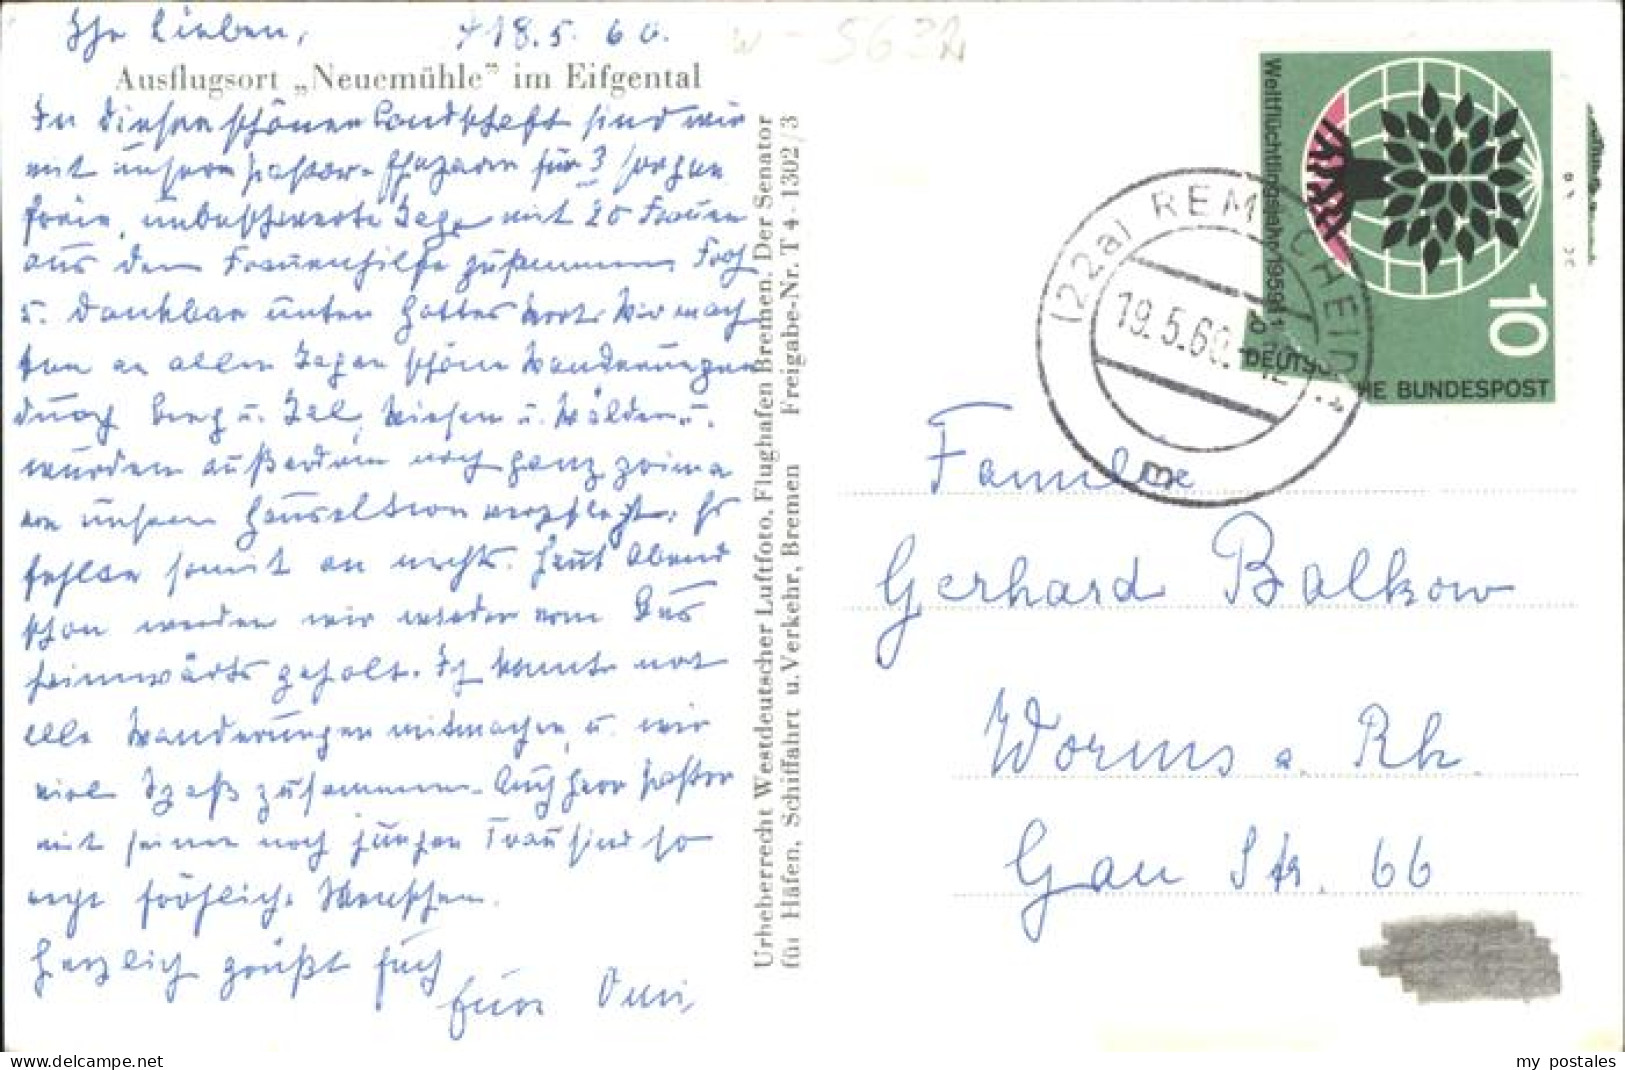 Ihr Lieben, 18.5.60.
W-5632
Ausflugsort „Neuemühle” im Eifgental
In dieser schönen Landschaft sind wir
mit unserm Pastor-Ehepaar für 3 sorgen
freie, unbeschwerte Tage mit 20 Frauen
aus der Frauenhilfe zusammen
Dankbar unter Gottes Wort. Wir mach
ten an allen Tagen schöne Wanderungen
durch Berg u. Tal, Wiesen u. Wälder u.
wurden außerdem noch ganz prima
von unsern verpflegt. Es
fehlte somit an nichts. Heut Abend
schon werden wir wieder vom Bus
heimwärts geholt. Ich konnte mit
alle Wanderungen mitmachen, u. wir
viel Spaß zusammen. Auch Herr Pastor
mit seiner noch jungen Frau sind so
fröhliche Menschen.
Herzlich grüßt Euch
Eure Omi
Urheberrecht Westdeutscher Luftfoto, Flughafen Bremen. Der Senator
für Häfen, Schiffahrt u. Verkehr, Bremen Freigabe-Nr. T 4-1302/3
Weltflüchtlingsjahr 1959/1960
10
DEUTSCHE BUNDESPOST
(22a) REMSCHEID
19.5.60.-12
m
Familie
Gerhard Balkow
Worms a. Rh.
Gau Str. 66
www.delcampe.net
my_postales